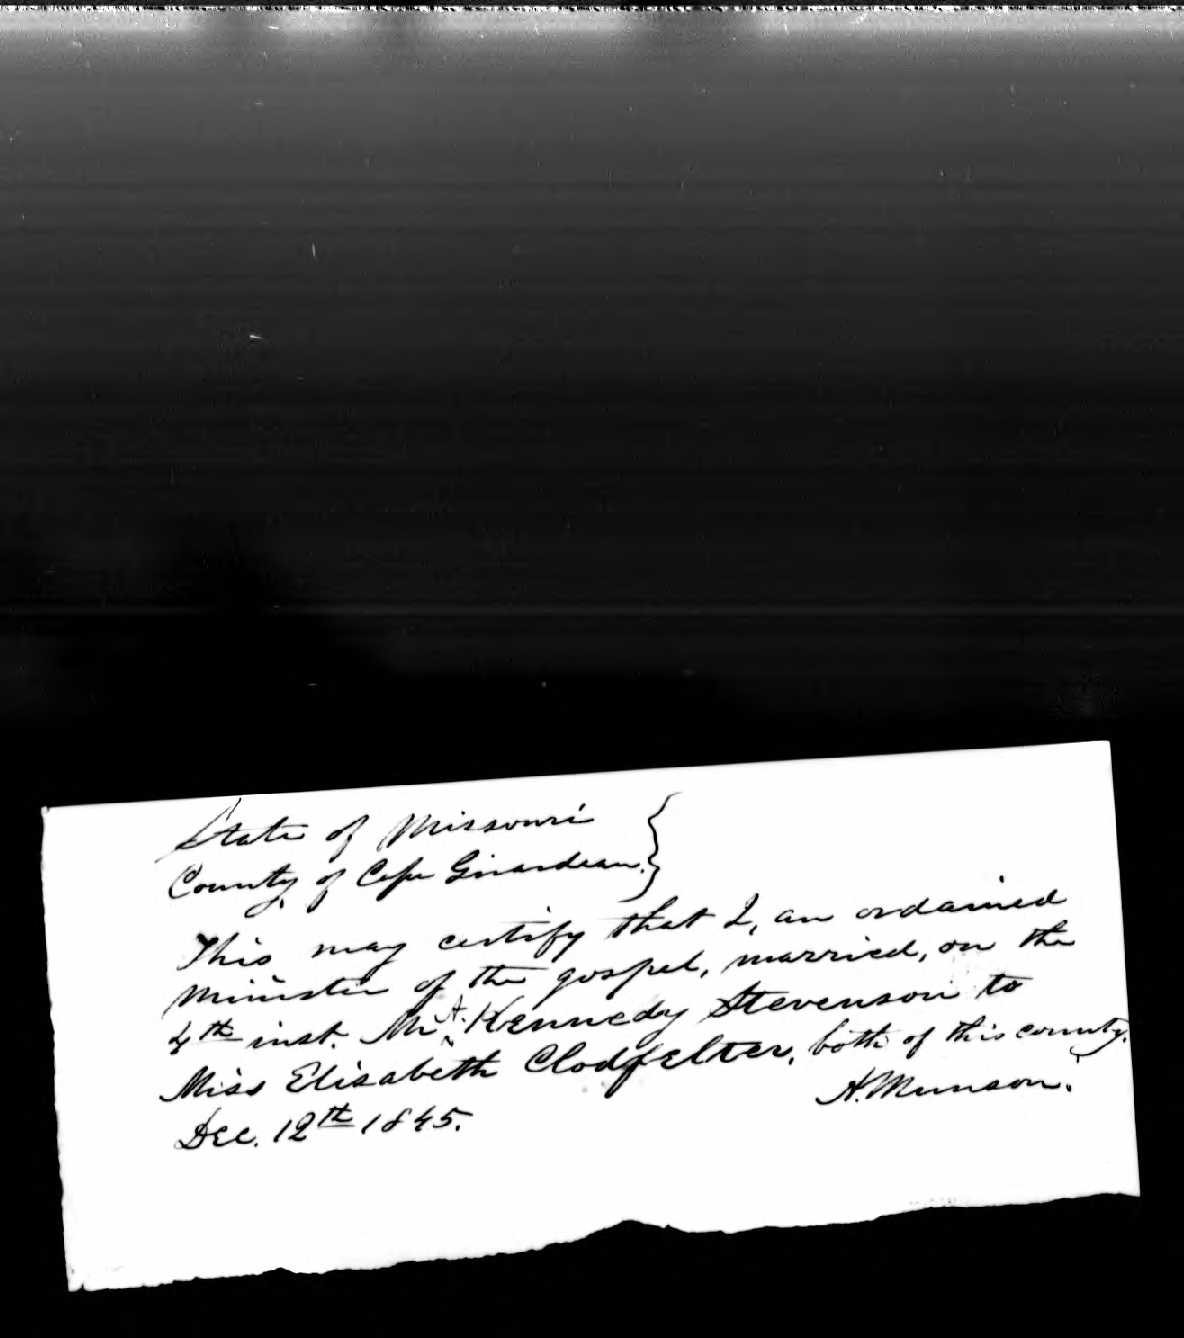 State of Missouri }
County of Cape Girardeau. }
This may certify that I, an ordained
Minister of the gospel, married, on the
4th inst. Mr. A. Kennedy Stevenson to
Miss Elisabeth Clodfelter, both of this county.
Dec. 12th 1845. A. Munson.